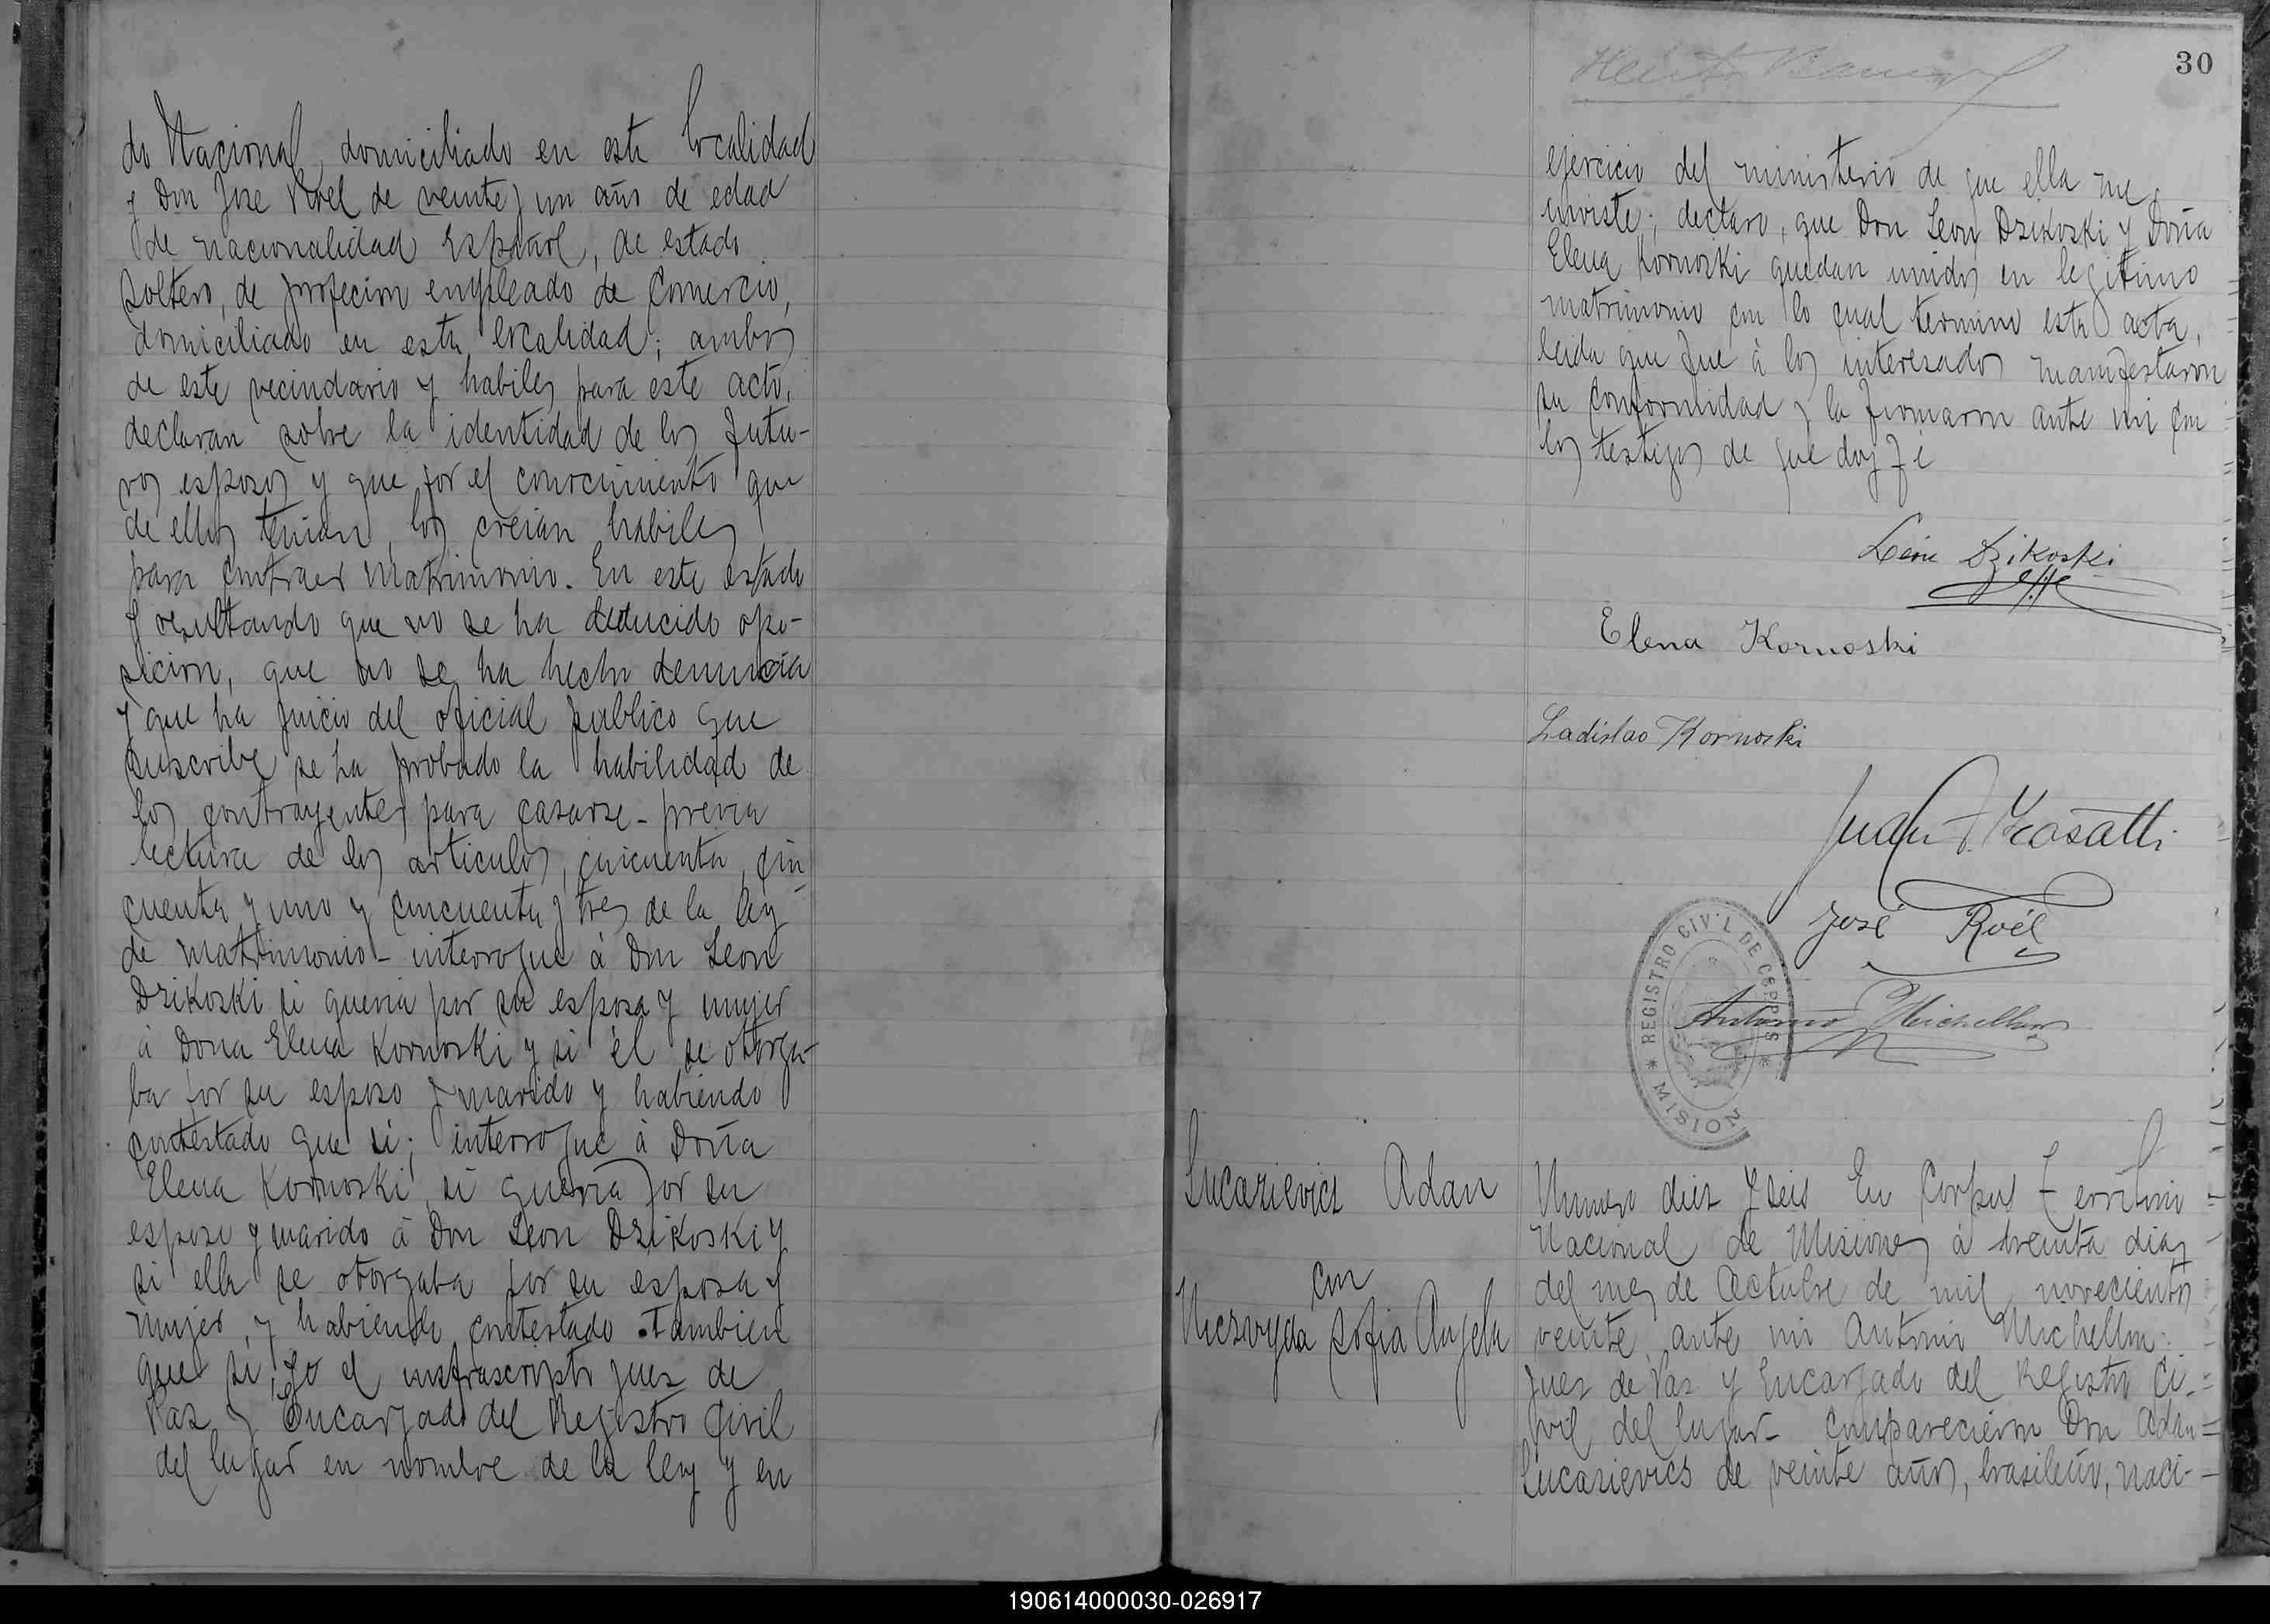 do Nacional, domiciliado en esta localidad
y Don Jose Roel de veinte y un año de edad
de nacionalidad Español, de estado
soltero, de profecion empleado de Comercio,
domiciliado en esta localidad; ambos
de este vecindario y habiles para este acto,
declaran sobre la identidad de los futu-
ros esposos y que por el conocimiento que
de ellos tenian, los creian habiles
para contraer Matrimonio. En este estado
y resultando que no se ha deducido opo-
sicion, que no se ha hecho denuncia
y que ha juicio del oficial publico que
suscribe se ha probado la habilidad de
los contrayentes para casarse - previa
lectura de los articulos, cincuenta, cin
cuenta y uno y cincuenta y tres de la ley
de matrimonio - interrogue à Don Leon
Dzikoski si queria por su esposa y mujer
à Dona Elena Kornoski y si él se otorga-
ba por su esposo y marido y habiendo
contestado que si; interrogue à Doña
Elena Kornoski, si queria por su
esposo y marido à Don Leon Dzikoski y
si ella se otorgaba por su esposa y
mujer, y habiendo contestado tambien
que si, yo el infrascripto juez de
Paz y Encargado del Registro Civil
del lugar en nombre de la ley y en
30
ejercicio del ministerio de que ella me
inviste; declaro, que Don Leon Dzikoski y Doña
Elena Kornoski quedan unidos en legitimo
matrimonio con lo cual termino esta acta,
leida que fue à los interesados manifestaron
su conformidad y la firmaron ante mi con
los testigos de que doy fé
León Dzikoski
Elena Kornoski
Ladislao Kornoski
Juan Kosatti
José Roél
REGISTRO CIVIL DE CORPUS
* MISIONES *
Antonio Michellon
Lucazievicz Adan
con
Niezvyda Sofia Angela
Numero diez y seis En Corpus Territorio
Nacional de Misiones à treinta dias
del mes de Octubre de mil novecientos
veinte, ante mi Antonio Michellon
juez de Paz y Encargado del Registro Ci-
vil del lugar - comparecieron Don Adan
Lucazievicz de veinte años, brasilero, naci-
190614000030-026917